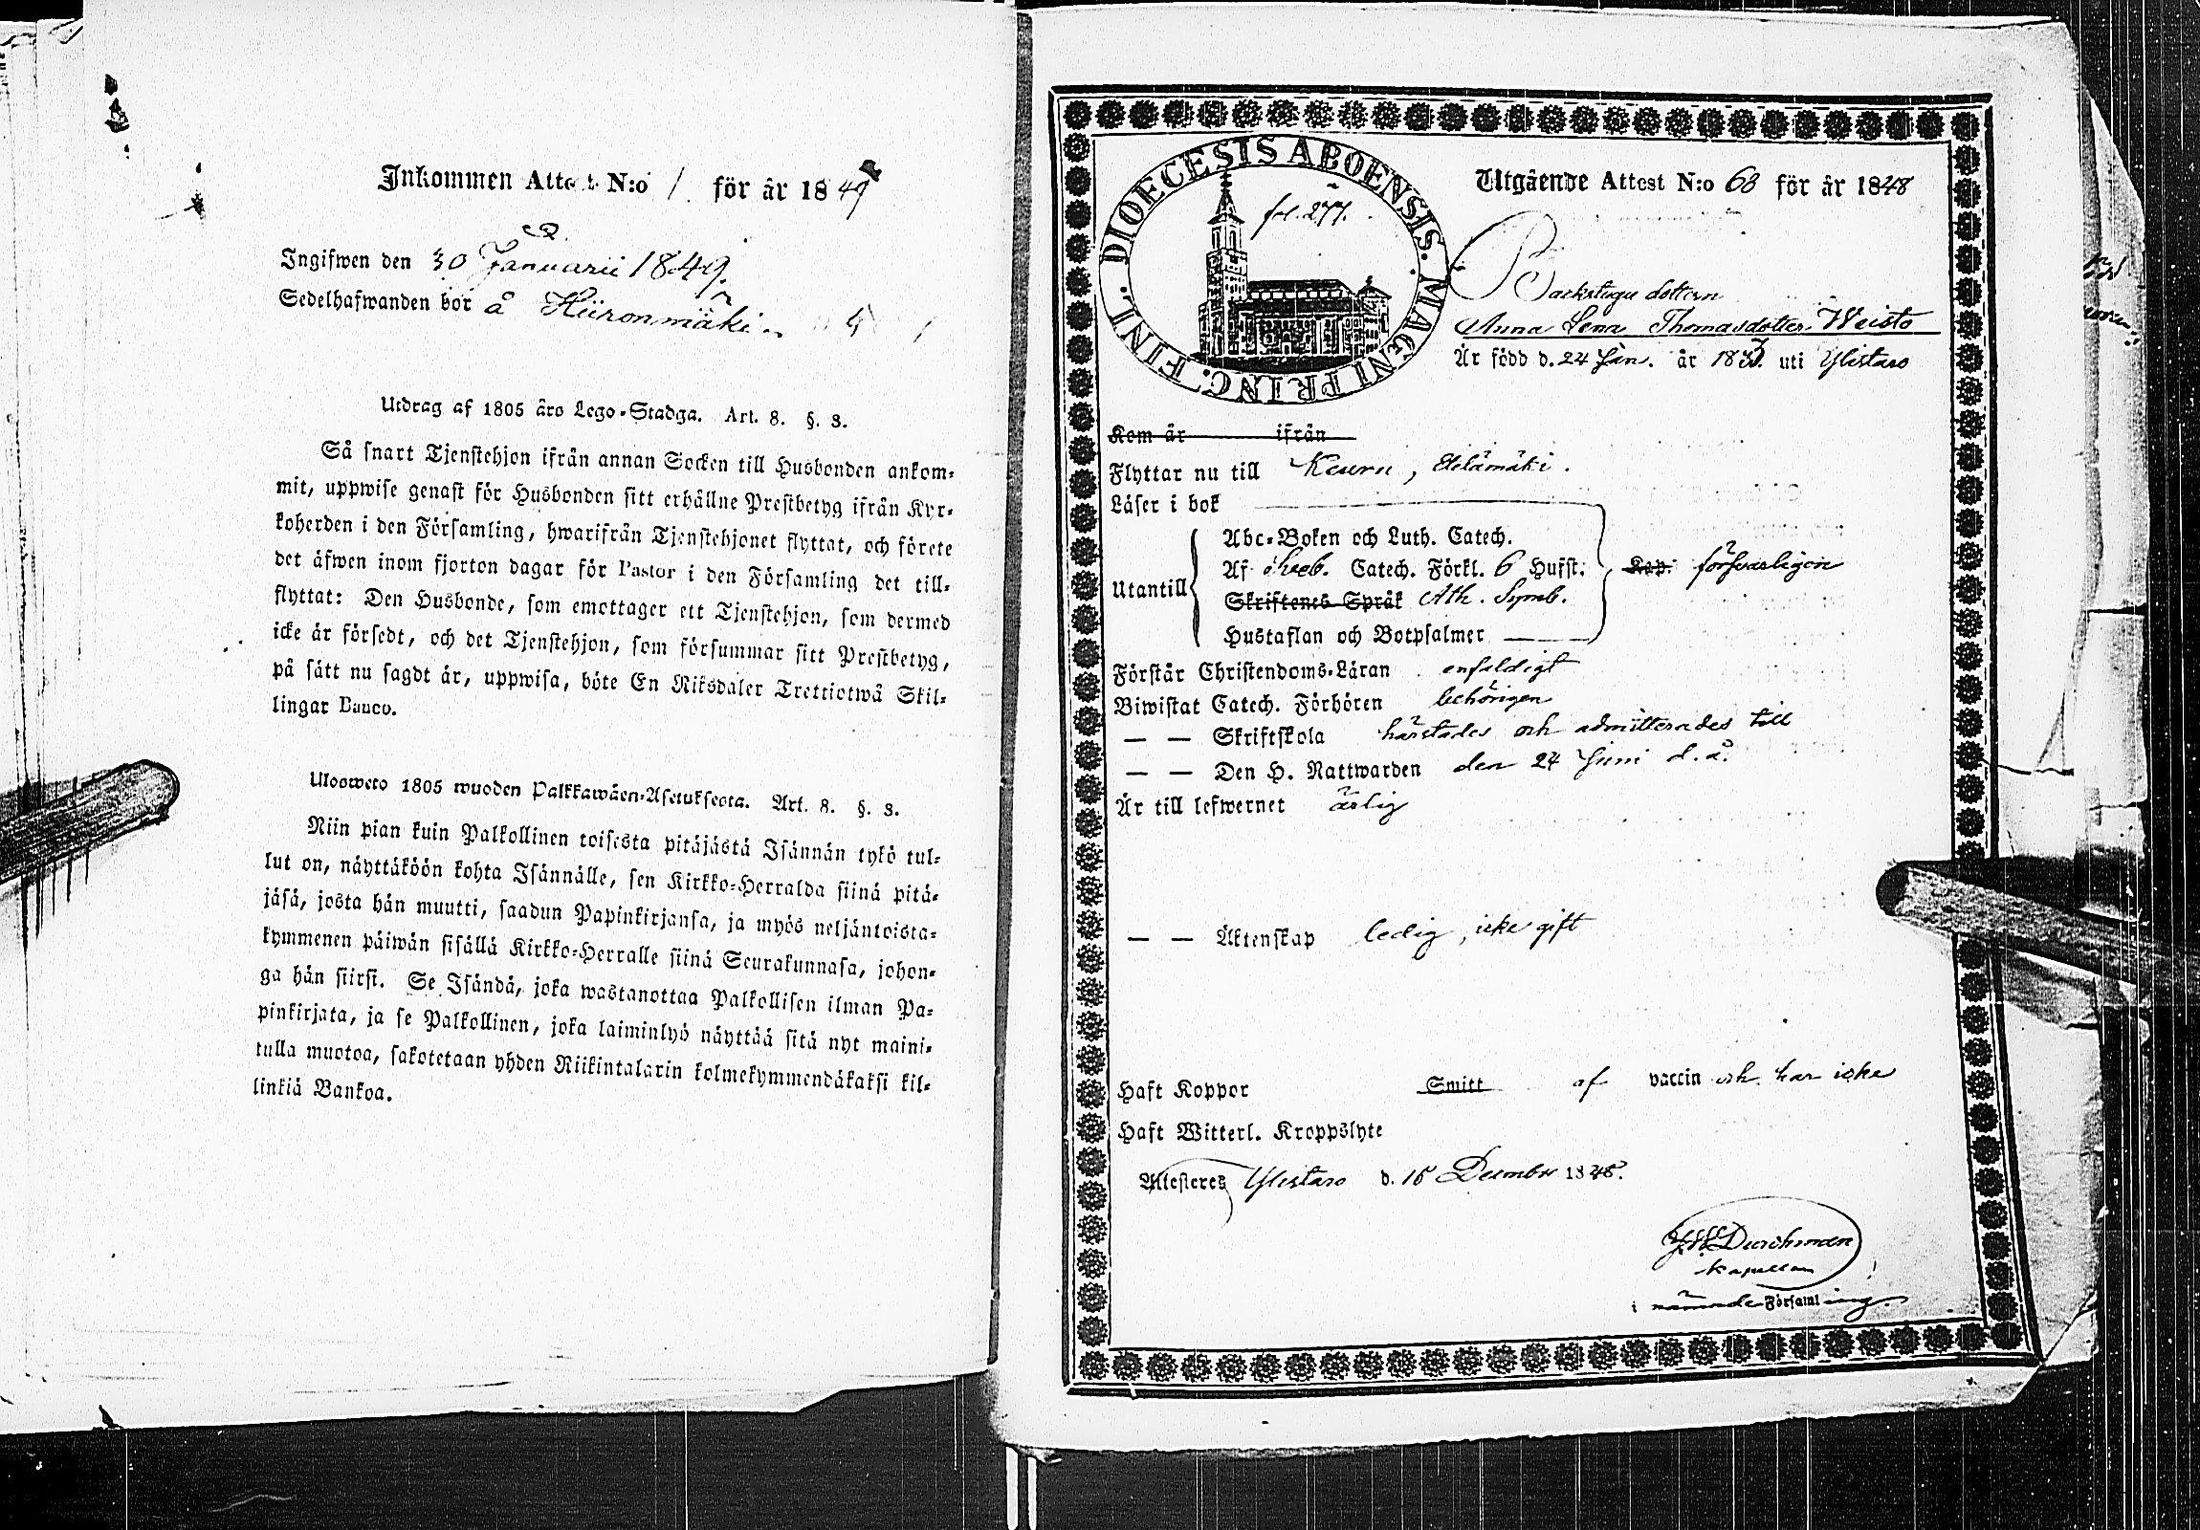 Inkommen Attest N:o 1. för år 1849
Ingifwen den 30 Januarii 1849.
Sedelhafwanden bor å Hiironmäki
Utdrag af 1805 åro Lego-Stadga. Art. 8. §. 3.
Så snart Tjenstehjon ifrån annan Socken till Husbonden ankom-
mit, uppwise genast för Husbonden sitt erhållne Prestbetyg ifrån Kyr-
koherden i den Församling, hwarifrån Tjenstehjonet flyttat, och förete
det äfwen inom fjorton dagar för Pastor i den Församling det till-
flyttat: Den Husbonde, som emottager ett Tjenstehjon, som dermed
icke är försedt, och det Tjenstehjon, som försummar sitt Prestbetyg,
på sätt nu sagdt är, uppwisa, böte En Riksdaler Trettiotwå Skil-
lingar Banco.
Ulosweto 1805 wuoden Palkkawäen-Asetuksesta. Art. 8. §. 3.
Niin pian kuin Palkollinen toisesta pitäjästä Isännän tykö tul-
lut on, näyttäköön kohta Isännälle, sen Kirkko-Herralda siinä pitä-
jäsä, josta hän muutti, saadun Papinkirjansa, ja myös neljäntoista-
kymmenen päiwän sisällä Kirkko-Herralle siinä Seurakunnasa, johon-
ga hän siirsi. Se Isändä, joka wastanottaa Palkollisen ilman Pa-
pinkirjata, ja se Palkollinen, joka laiminlyö näyttää sitä nyt maini-
tulla muotoa, sakotetaan yhden Riikintalarin kolmekymmendäkaksi kil-
linkiä Bankoa.
DIOECESIS ABOENSIS. MAGNI PRINC. FINL.
fol. 277.
Utgående Attest N:o 63 för år 1848
Backstugu dottern
Anna Lena Thomasdotter Weisto
Är född d. 24 Jan. år 1833 uti Ylistaro
Kom år ifrån
Flyttar nu till Keuru,
Läser i bok
Utantill
Abc-Boken och Luth. Catech.
Af Sveb. Catech. Förkl. 6 Hufst.
Skriftenes Språk Ath. Symb.
Hustaflan och Botpsalmer
Kap. försvarligen
Förstår Christendoms-Läran enfaldigt
Biwistat Catech. Förhören behörigen
— — Skriftskola härstädes och admitterades till
— — Den H. Nattwarden den 24 Juni d. å.
Är till lefwernet ärlig
— — Äktenskap ledig, icke gift
Haft Koppor Smitt af vaccin och har icke
Haft Witterl. Kroppslyte
Attesteres Ylistaro d. 15 December 1848.
Durchman
Kapellan
i nämnde Församling.